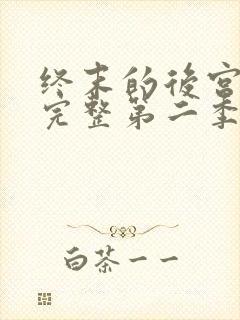 终末的後宫
完整第二季
白茶一一